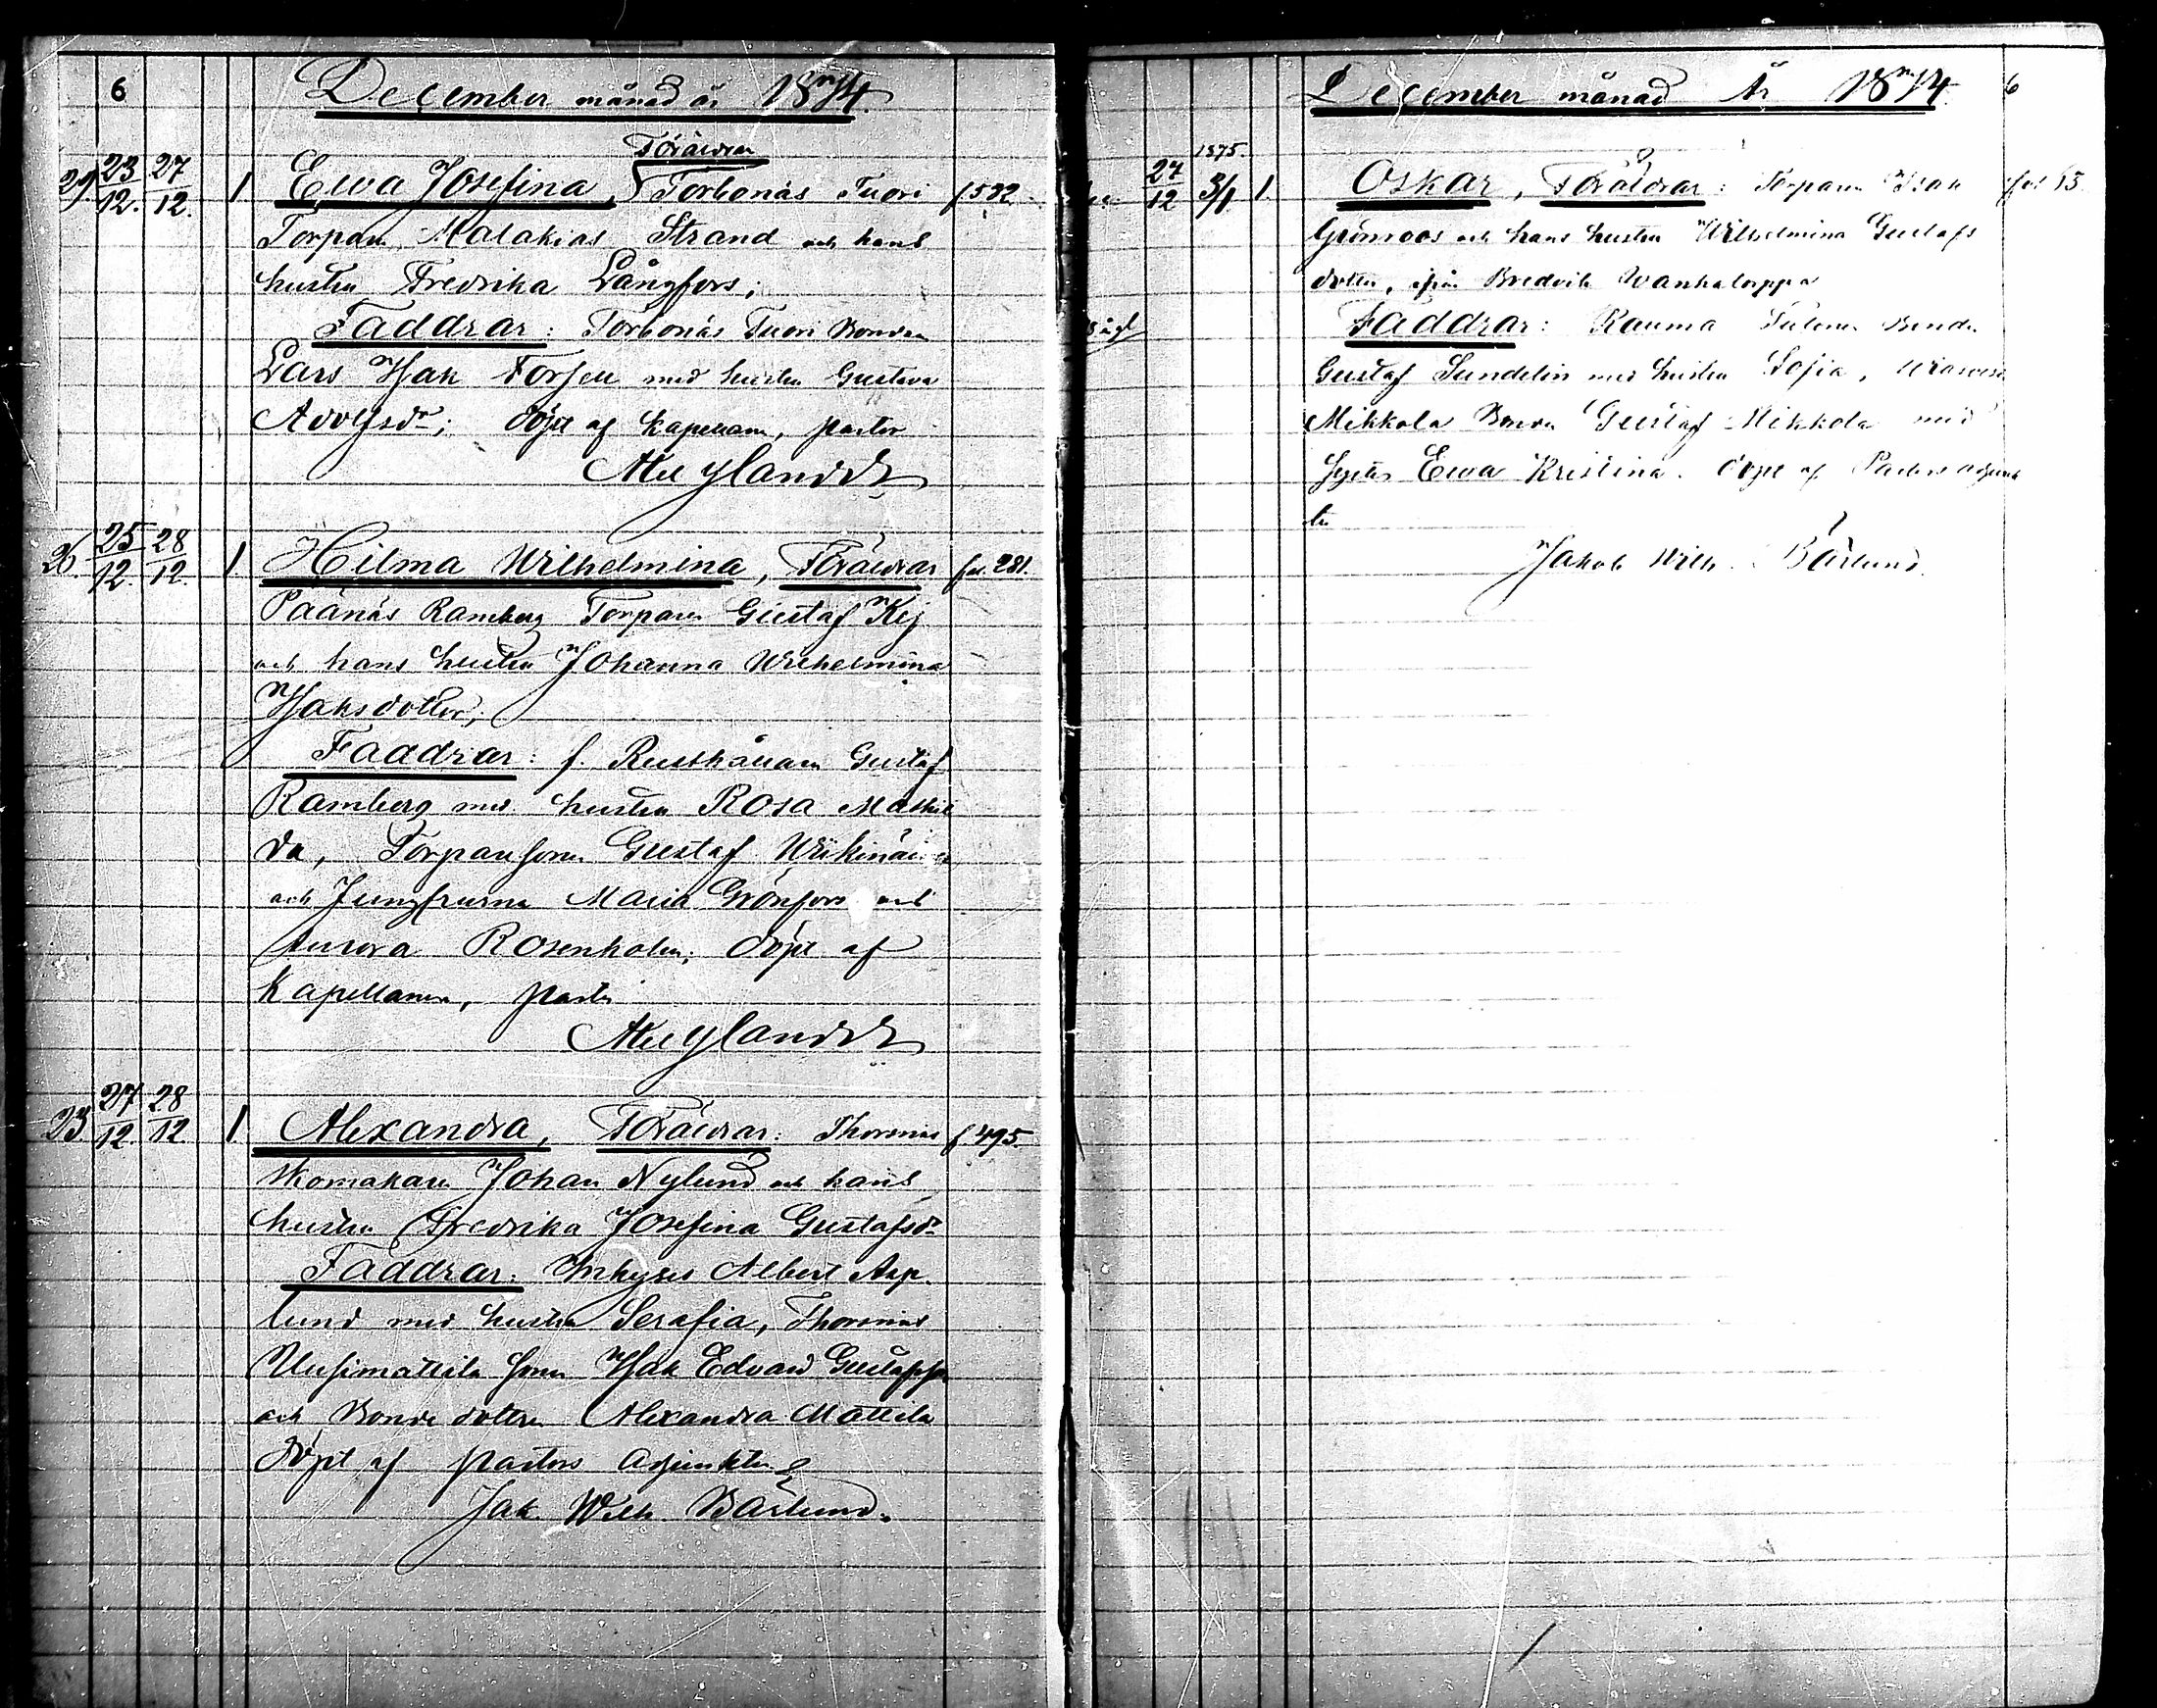 6
December månad år 1874.
Föräldrar
29. 23/12. 27/12. 1 Ewa Josefina, Torbonäs Tuori f 532
Torparn Malakias Strand och hans
hustru Fredrika Långfors;
Faddrar: Torbonäs Tuori Bonden
Lars Isak Forsell med hustru Gustava
Adolfsdr; döpt af Kapellanen, pastor
Nylander
26. 25/12. 28/12. 1 Hilma Wilhelmina, Föräldrar fol. 281.
Päänäs Ramberg Torparen Gustaf Kej
och hans hustru Johanna Wilhelmina
Isaksdotter;
Faddrar: f. Rusthållaren Gustaf
Ramberg med hustru Rosa Mathil
da, Torparesonen Gustaf
och Jungfrurna Maria Grönfors och
Aurora Rosenholm; döpt af
Kapellanen, pastor
Nylander
23 27/12. 28/12 1 Alexandra, Föräldrar: f 495.
skomakaren Johan Nylund och hans
hustru Fredrika Josefina Gustafsdr
Faddrar: Inhyses Albert Asp-
lund med hustru Serafia,
Uusimattila sonen Isak Edvard Gustafsson
och Bonde dottern Alexandra Mattila
döpt af pastors Adjunkten
Jak. Wilh. Bärlund.
December månad År 1874. 6
1875.
24/12 3/1 1. Oskar, Föräldrar: Torparen Isak fol 13.
Grönroos och hans hustru Wilhelmina Gustafs
dotter, ifrån Bredvik Wanhatorppa
Faddrar: Rauma Bonden
Gustaf Sundelin med hustru Sofia,
Mikkola Bonden Gustaf Mikkola med
Syster Ewa Kristina. döpt af Pastors adjunk
ten
Jakob Wilh. Bärlund.